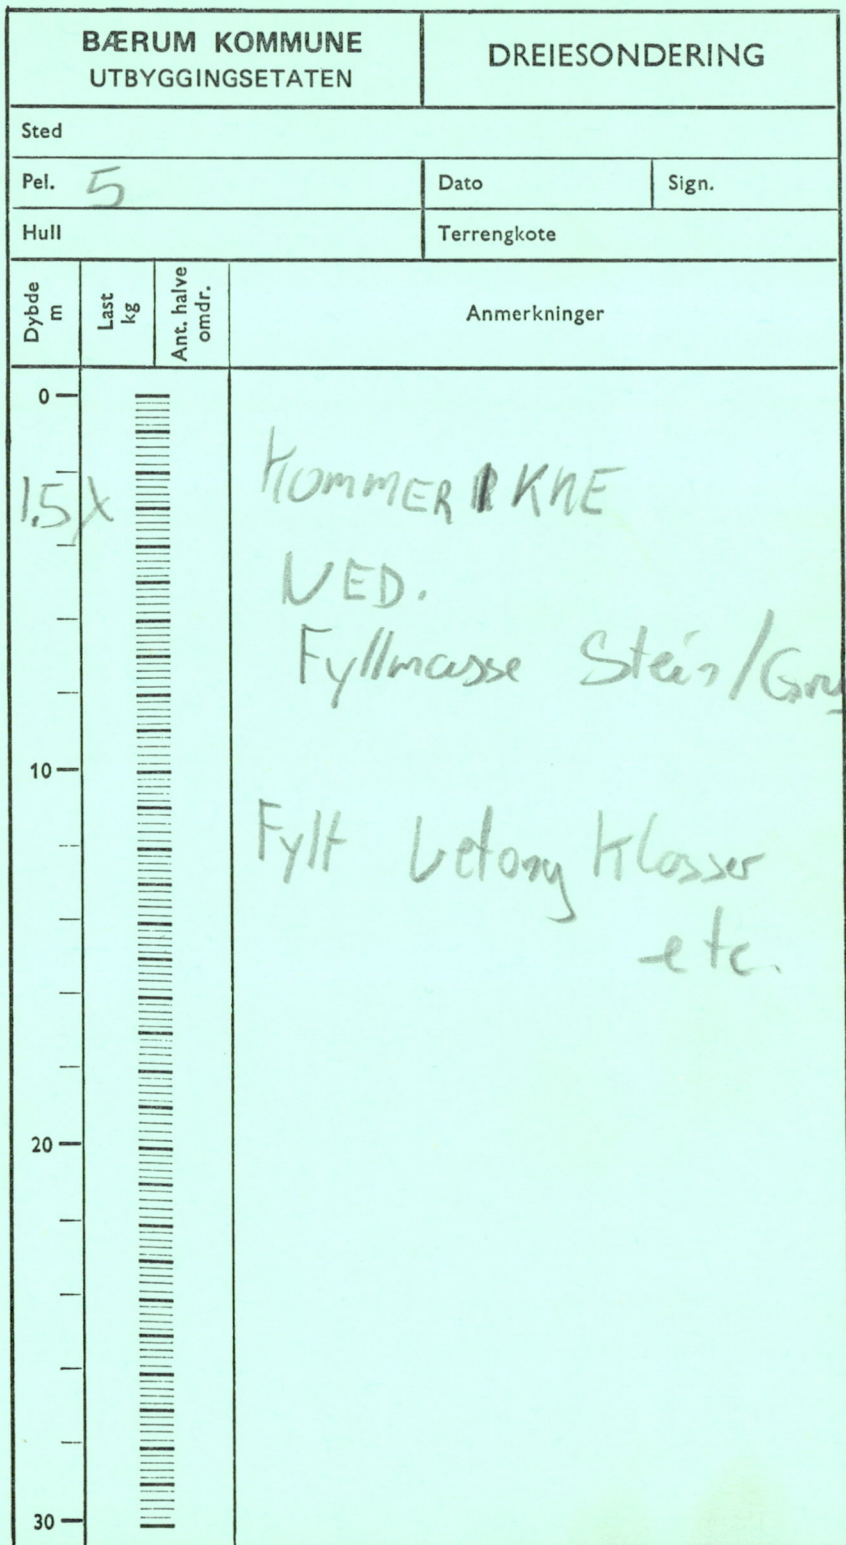 BÆRUM KOMMUNE
UTBYGGINGSETATEN
DREIESONDERING
Sted
Pel. 5
Dato
Sign.
Hull
Terrengkote
Dybde m
Last kg
Ant. halve omdr.
Anmerkninger
0
KOMMER KNE
1,5 X
NED.
Fyllmasse Stein/
10
Fylt betong Klosser
etc.
20
30